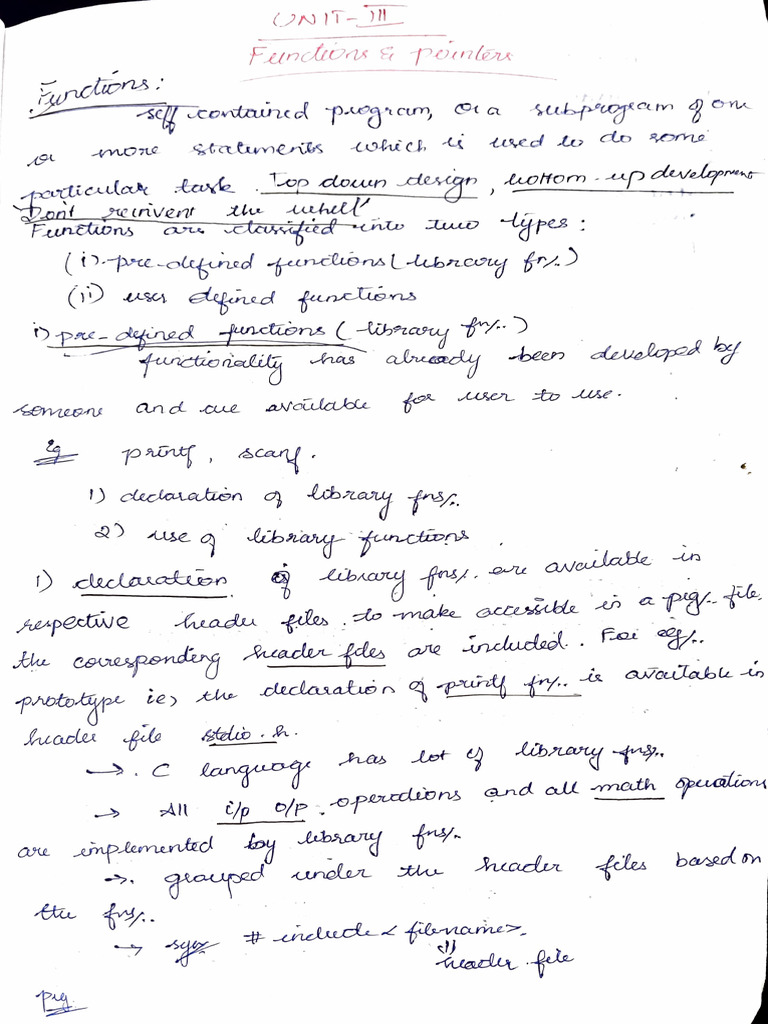 UNIT-III
Functions & pointers
Functions:
self contained program, or a subprogram of one
or more statements which is used to do some
particular task. Top down design, bottom-up development
Don't reinivent the whell
Functions are classified into two types:
(i) pre-defined functions (library fn/.)
(ii) user defined functions
i) pre-defined functions (library fn/.)
functionality has already been developed by
someone and are available for user to use.
Eg printf, scanf.
1) declaration of library fns/.
2) use of library functions
1) declaration of library fns/. are available in
respective header files. to make accessible in a prg/. file,
the corresponding header files are included. For eg/.
prototype ie, the declaration of printf fn/. is available in
header file stdio.h.
→. C language has lot of library fns/.
→ All i/p o/p operations and all math operations
are implemented by library fns/.
→. grouped under the header files based on
the fns/.
→ # include < filename>.
header file
prg